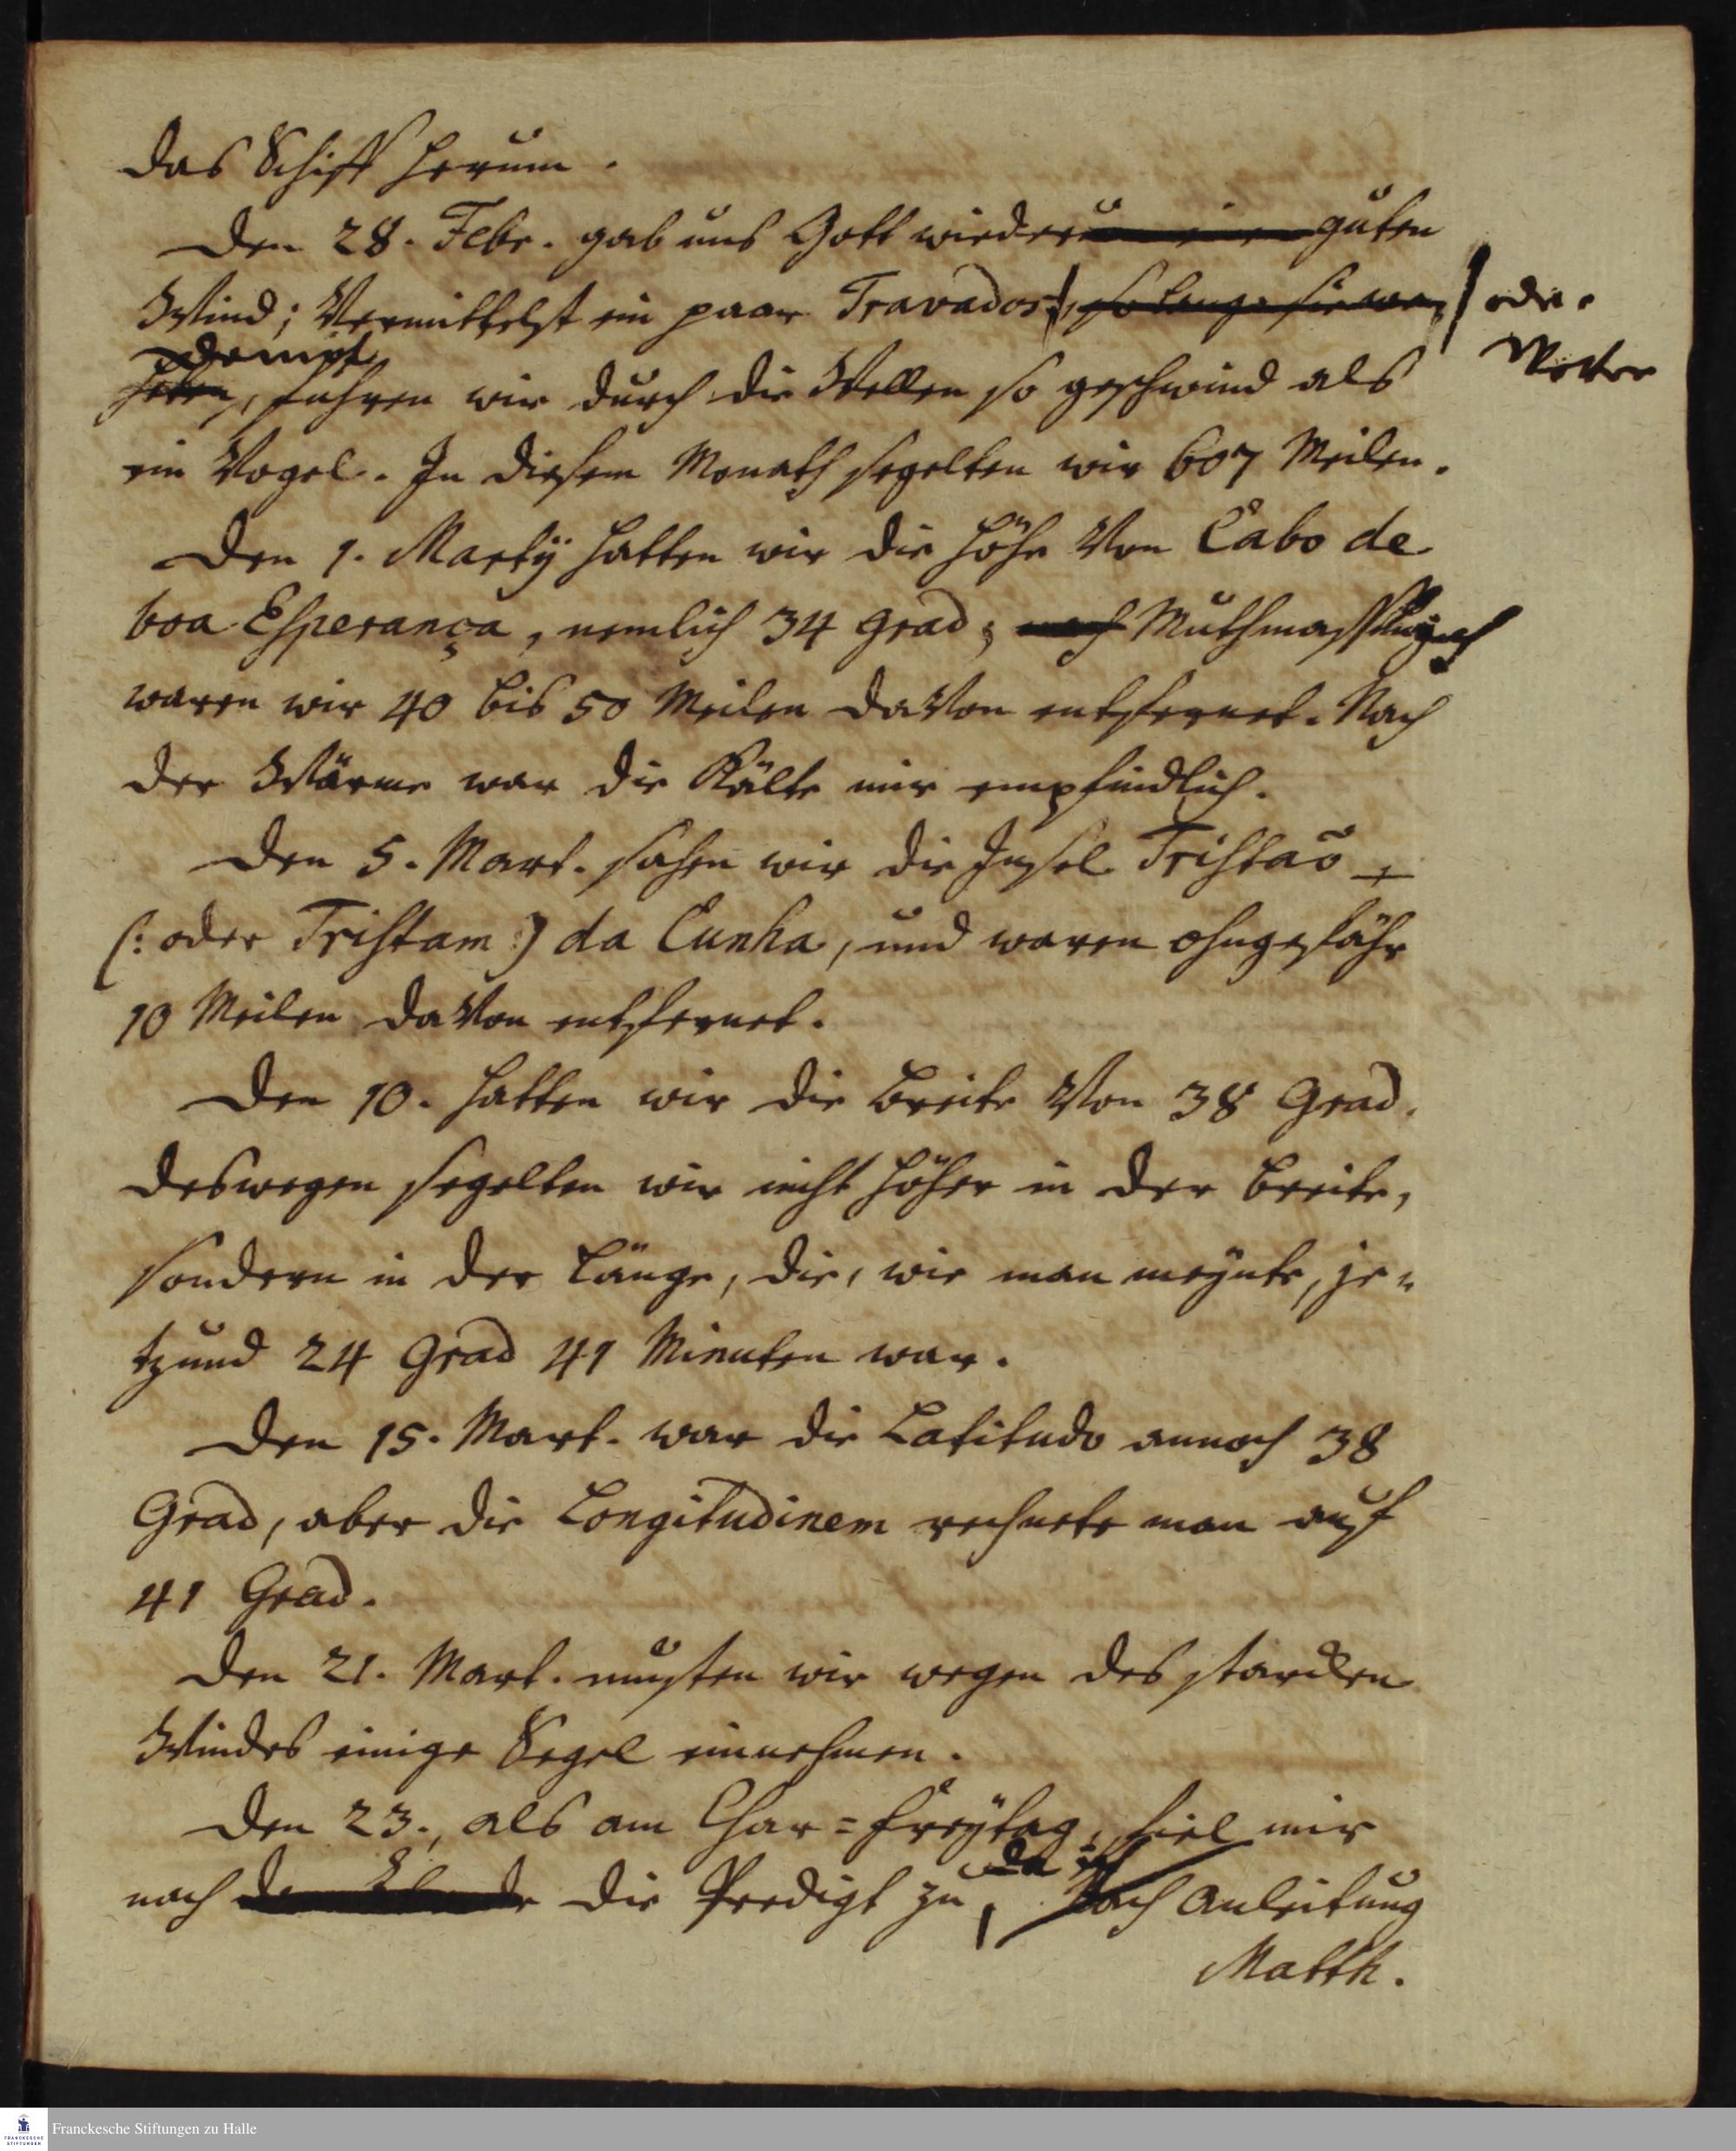 das Schiff herum.
Den 28. Febr. gab uns Gott wiederum einen guten
Wind; Vermittelst ein paar Travados, so lange sie wa- oder
Wetter
heten, fuhren wir durch die Wellen so geschwind als
ein Vogel. In diesem Monath segelten wir 607 Meilen.
Den 1. Martÿ hatten wir die Höhe Von Cabo de
boa Esperança, nemlich 34 Grad; nach Muthmassung
waren wir 40 bis 50 Meilen daVon entfernet. Nach
der Wärme war die Kälte mir empfindlich.
Den 5. Mart. sahen wir die Insel Tristaõ
(: oder Tristam :) da Cunha, und waren ohngefähr
10 Meilen daVon entfernet.
Den 10. hatten wir die Breite Von 38 Grad.
deswegen segelten wir nicht höher in der Breite,
sondern in der Länge, die, wie man meÿnte, je-
tzund 24 Grad 41 Minuten war.
Den 15. Mart. war die Latitudo annoch 38
Grad, aber die Longitudinem rechnete man auf
41 Grad.
Den 21. Mart. musten wir wegen des starcken
Windes einige Segel einnehmen.
Den 23., als am Char=Freÿtag, fiel mir
da ich
noch die Predigt zu, Nach Anleitung
Matth.
FRANCKESCHE STIFTUNGEN
Franckesche Stiftungen zu Halle